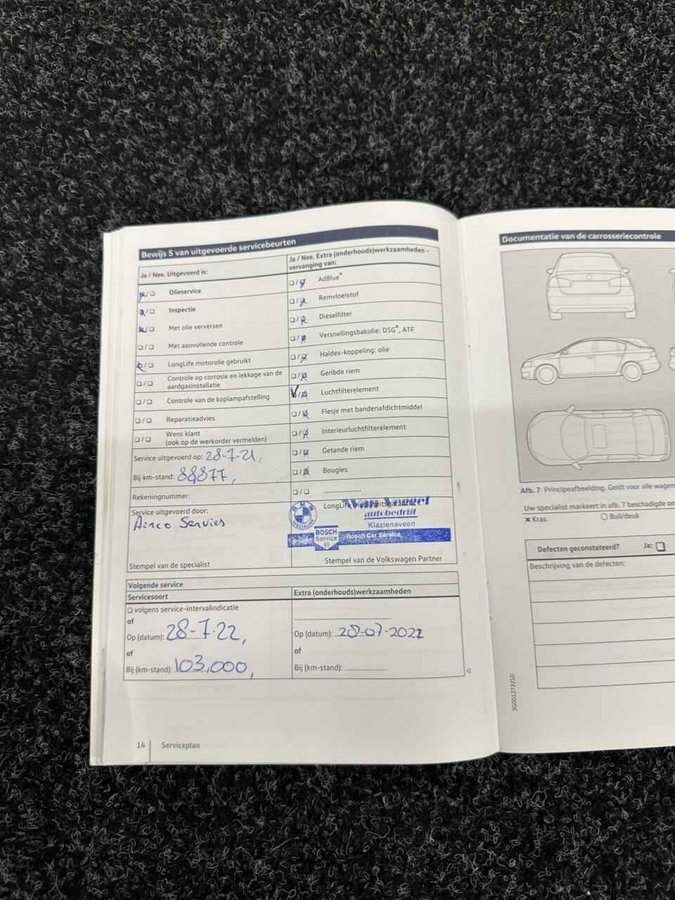 Bewijs 5 van uitgevoerde servicebeurten
Ja / Nee. Uitgevoerd is:
Olieservice
Inspectie
Met olie verversen
Met aanvullende controle
LongLife motorolie gebruikt
Controle op corrosie en lekkage van de
aardgasinstallatie
Controle van de koplampafstelling
Reparatieadvies
Wens klant
(ook op de werkorder vermelden)
Service uitgevoerd op: 28-7-21,
Bij km-stand: 88877,
Rekeningnummer:
Service uitgevoerd door:
Stempel van de specialist
Ja / Nee. Extra (onderhouds)werkzaamheden -
vervanging van:
AdBlue®
Remvloeistof
Dieselfilter
Versnellingsbakolie: DSG®, ATF
Haldex-koppeling: olie
Geribde riem
Luchtfilterelement
Flesje met bandenafdichtmiddel
Interieurluchtfilterelement
Getande riem
Bougies
autobedrijf
Klazienaveen
BOSCH
Service
Bosch Car Service
Stempel van de Volkswagen Partner
Volgende service
Servicesoort
volgens service-intervalindicatie
of
Op (datum): 28-7-22,
of
Bij (km-stand): 103.000,
Extra (onderhouds)werkzaamheden
Op (datum): 28-07-2022
of
Bij (km-stand):
14 Serviceplan
Documentatie van de carrosseriecontrole
Afb. 7 Principeafbeelding. Geldt voor alle wagen
Uw specialist markeert in afb. 7 beschadigde
x Kras O Buil/deuk
Defecten geconstateerd? Ja:
Beschrijving van de defecten: